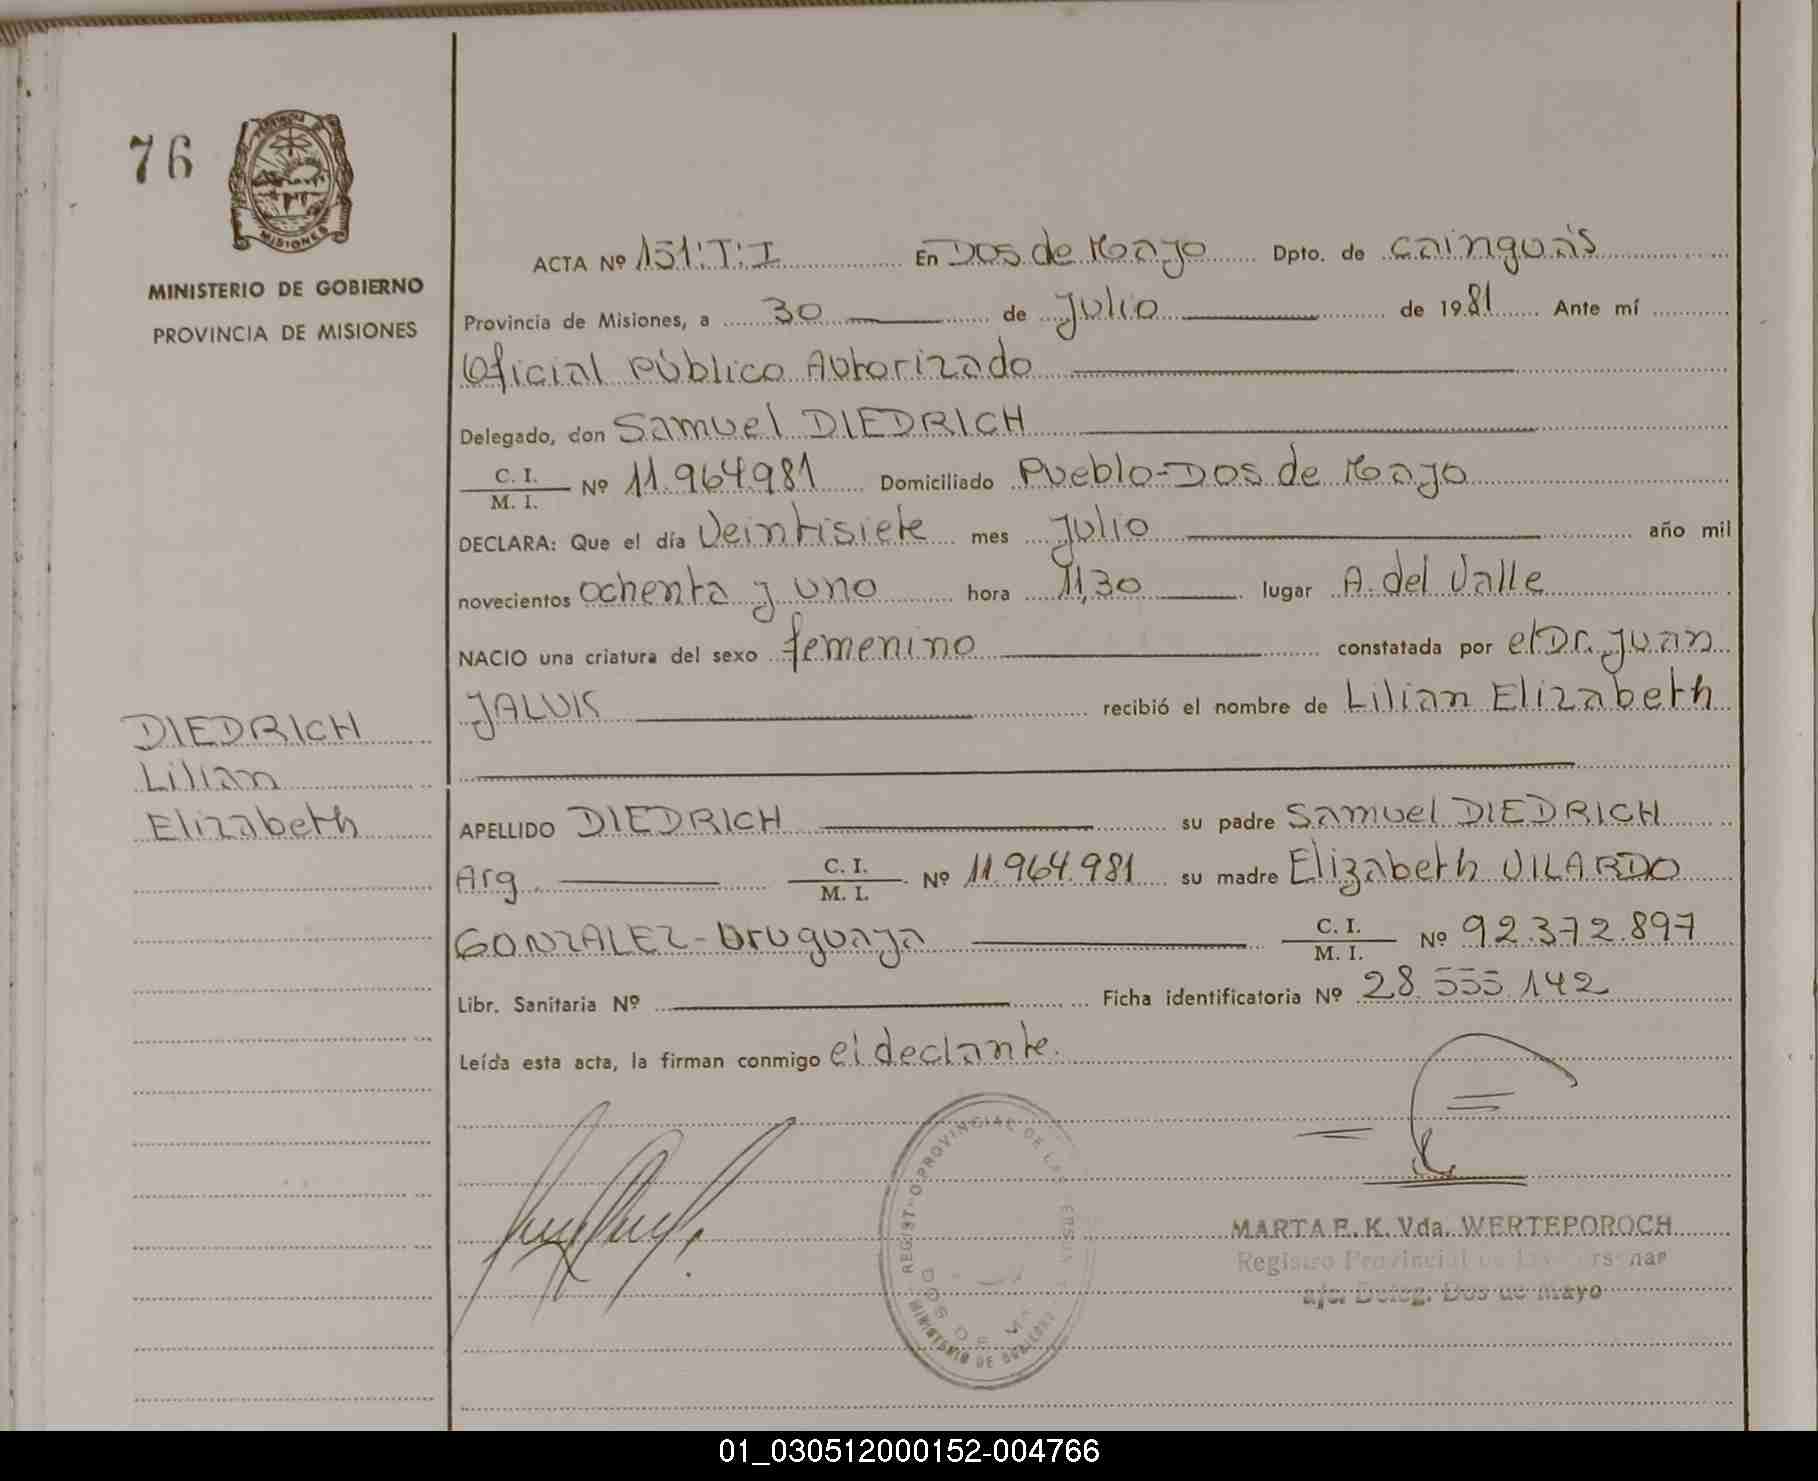 76
MISIONES
MINISTERIO DE GOBIERNO
PROVINCIA DE MISIONES
DIEDRICH
Lilian
Elizabeth
ACTA Nº 151:T:I En Dos de Mayo Dpto. de Cainguás
Provincia de Misiones, a 30 de Julio de 1981 Ante mí
Oficial Público Autorizado
Delegado, don Samuel DIEDRICH
C. I.
M. I. Nº 11.964.981 Domiciliado Pueblo-Dos de Mayo
DECLARA: Que el día Veintisiete mes Julio año mil
novecientos ochenta y uno hora 11,30 lugar A. del Valle
NACIO una criatura del sexo femenino constatada por el Dr. Juan
JALUK recibió el nombre de Lilian Elizabeth
APELLIDO DIEDRICH su padre Samuel DIEDRICH
Arg. C. I.
M. I. Nº 11.964.981 su madre Elizabeth VILARDO
GONZALEZ-Uruguaya C. I.
M. I. Nº 92.372.897
Libr. Sanitaria Nº Ficha identificatoria Nº 28.555.142
Leída esta acta, la firman conmigo el declante.
MARTA E. K. Vda. WERTEPOROCH
Registro Provincial de las
Deleg. Dos de Mayo
MINISTERIO DE GOBIERNO
01_030512000152-004766